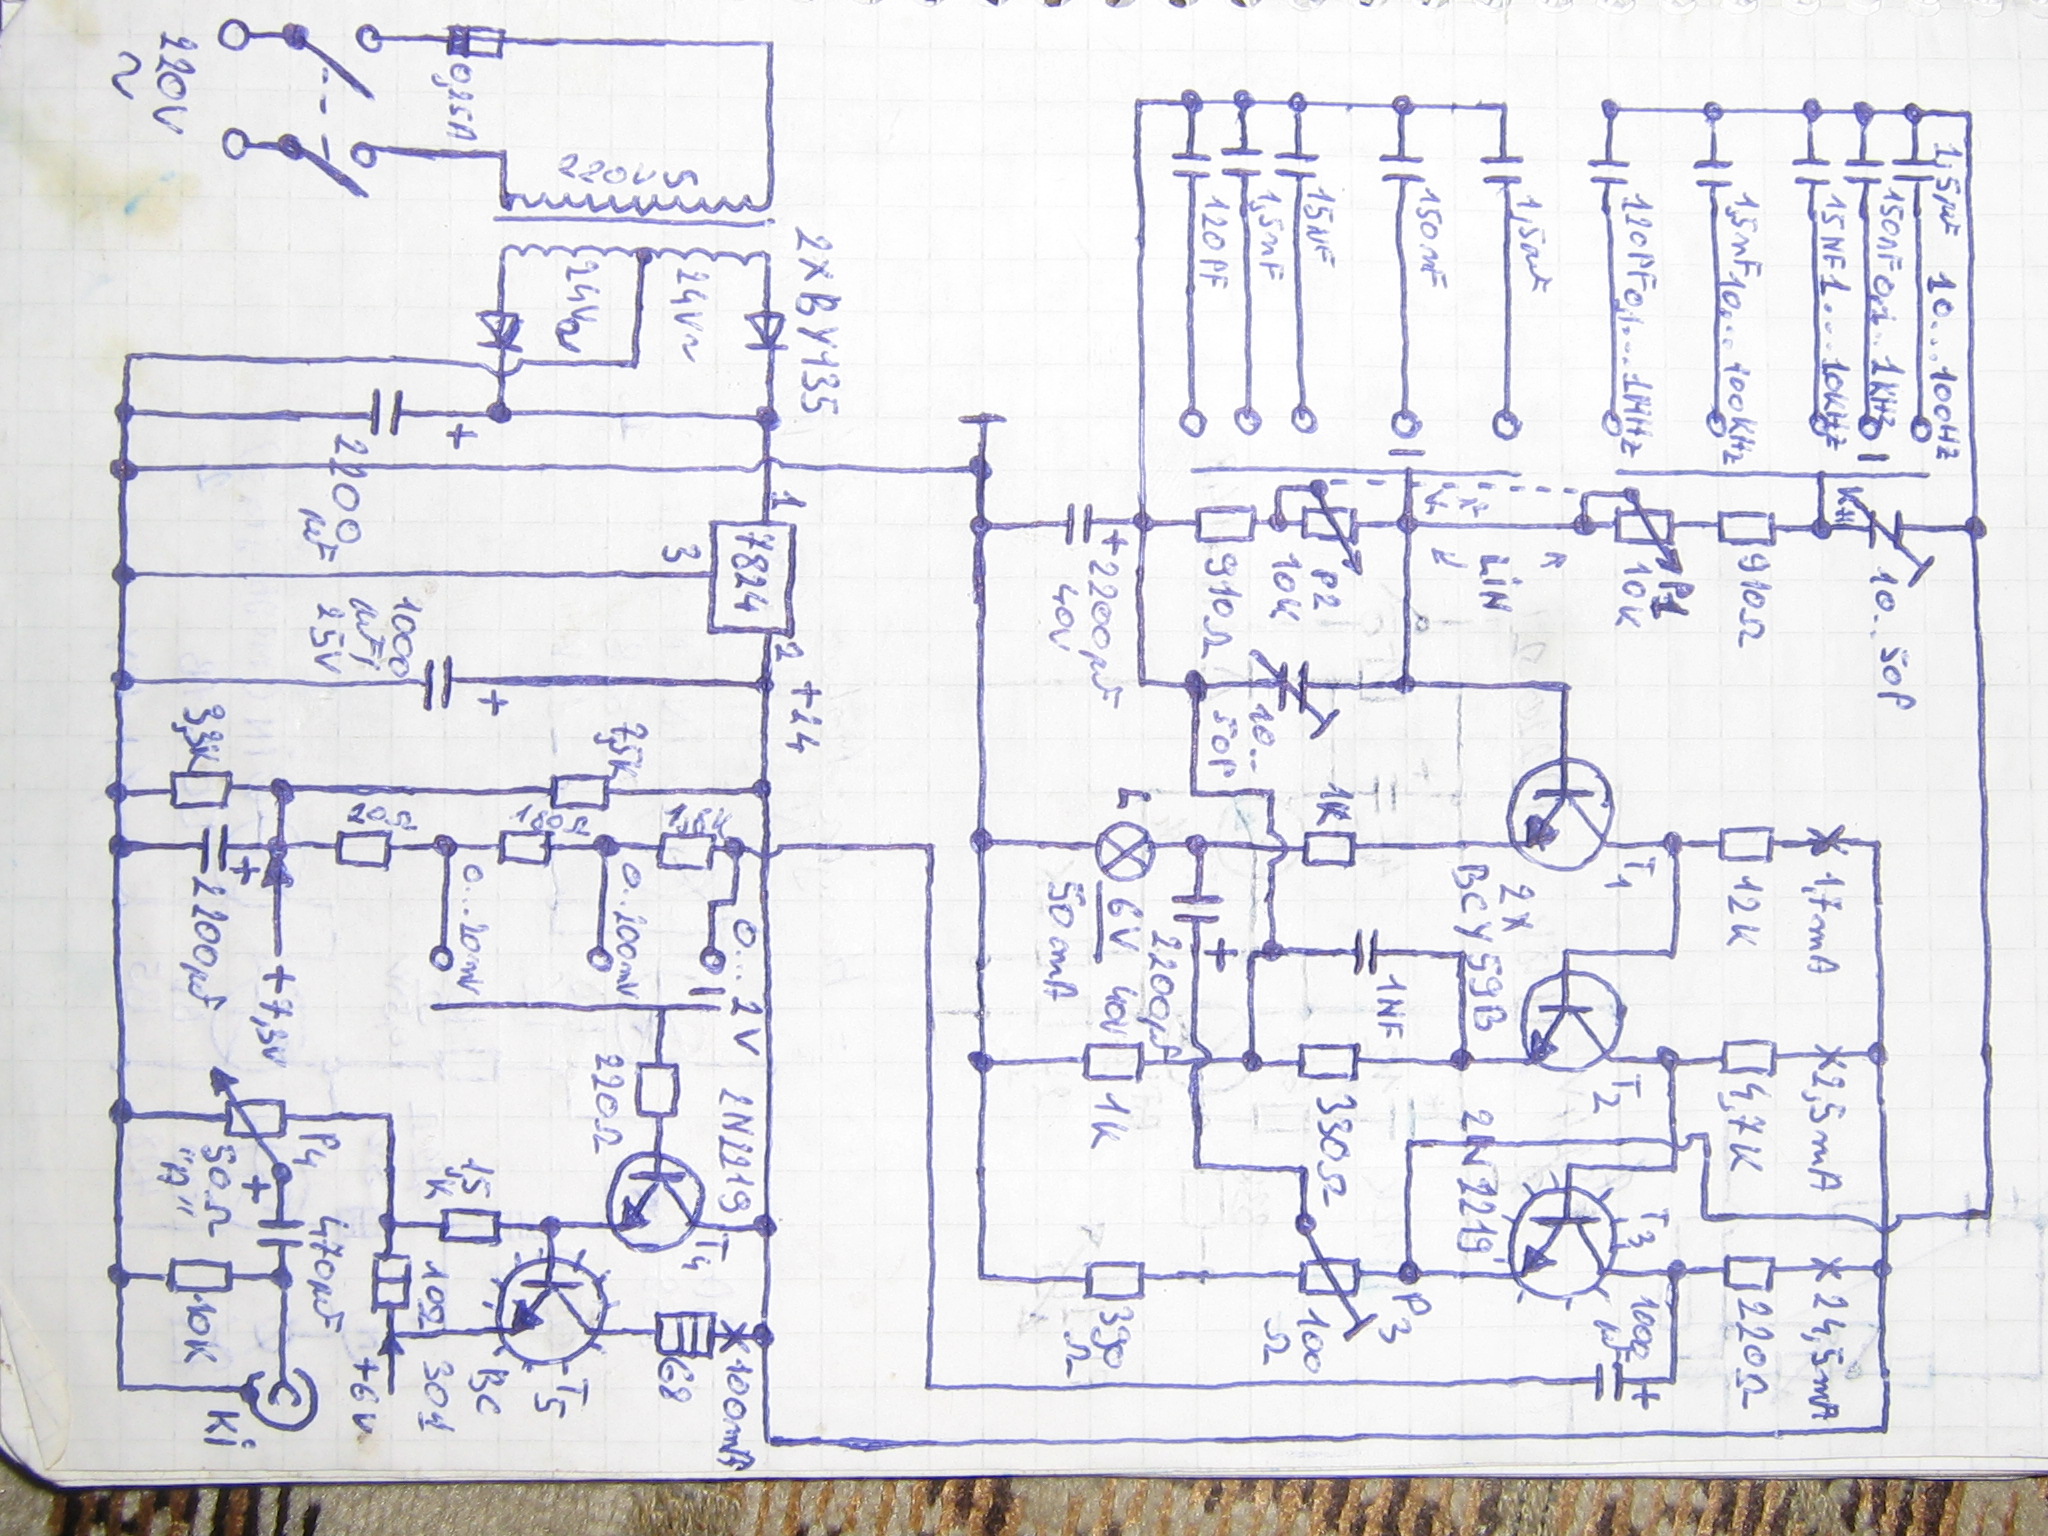 1,5µF 10...100Hz
150nF 0,1..1KHz
15NF 1...10KHz
1,5nF 10...100KHz
120PF 0,1...1MHz
1,5µF
150nF
15NF
1,5nF
120PF
10..50P
910Ω
P1
10K
LiN
P2
10K
910Ω
+ 2200µF
40V
10..
50P
12K
1,7mA
T1
2X
BCY59B
1K
L
6V
50mA
+
2200µF
40V
4,7K
2,5mA
T2
1NF
330Ω
1K
220Ω
24,5mA
1000
µF
+
T3
2N2219
P3
100
Ω
390
Ω
2XBY135
24V~
24V~
220V
~
0,25A
1
7824
2
3
+24
+
2200
µF
+
1000
µF
25V
7,5K
3,3K
0...2V
0..200mV
0...20mV
+
2200µF
+7,3V
220Ω
2N2219
T4
100mA
68
T5
BC
301
1,5
K
10Ω
+6V
P4
50Ω
+
470µF
10K
Ki